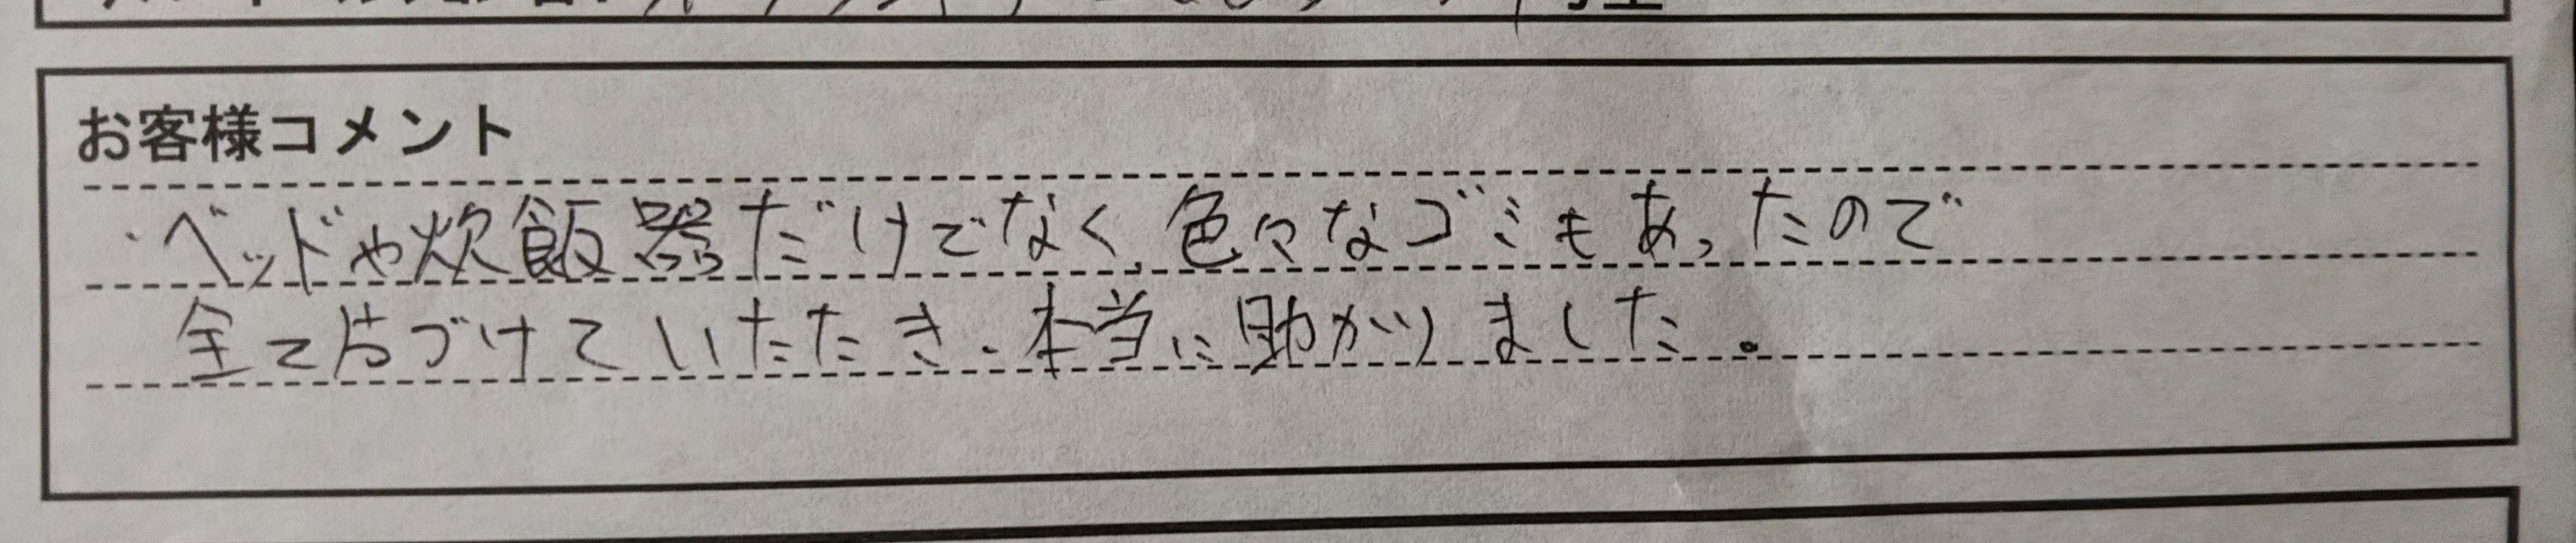 お客様コメント
・ベッドや炊飯器だけでなく、色々なゴミもあったので
全て片づけていたたき、本当に助かりました。